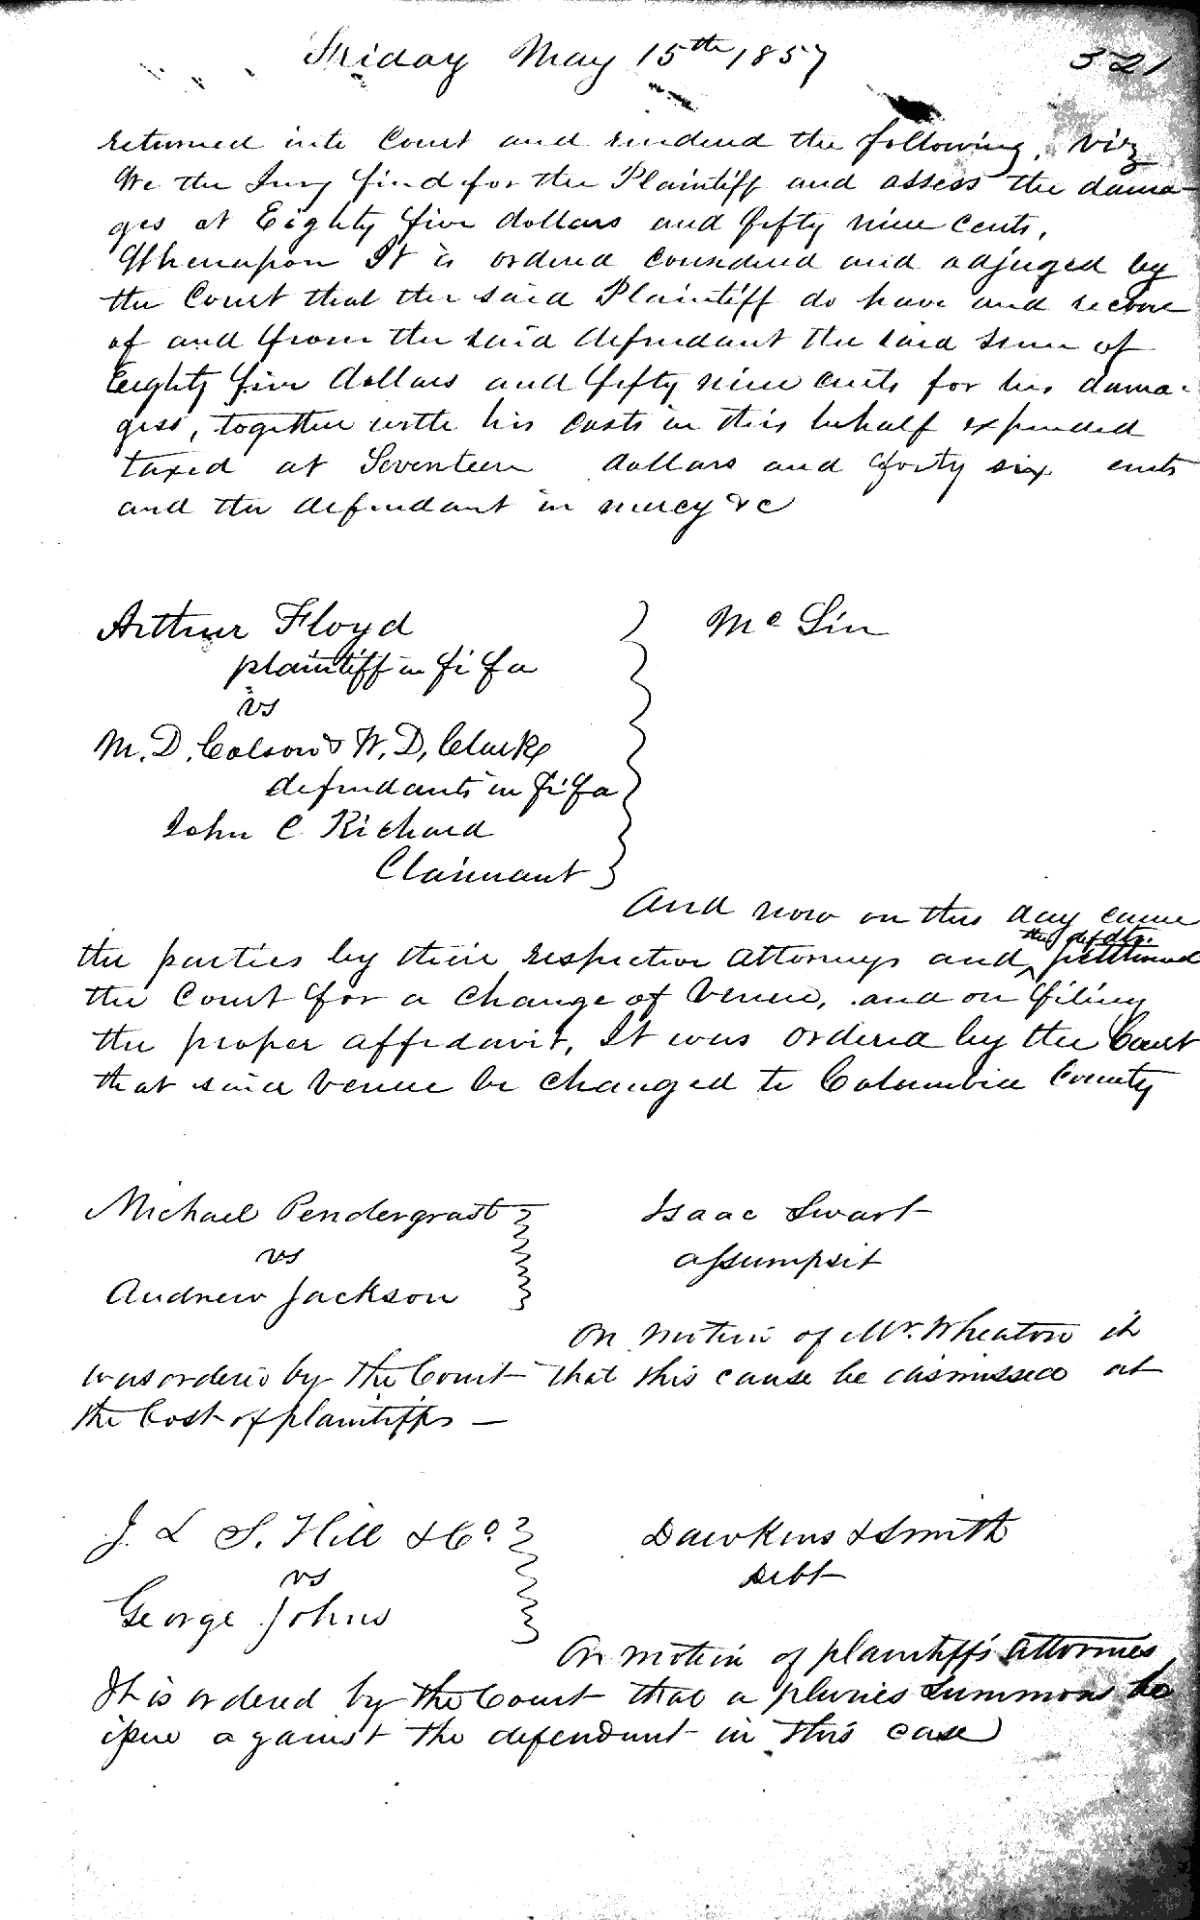 Friday May 15th 1857 321
returned into Court and rendered the following, viz
We the Jury find for the Plaintiff and assess the dama-
ges at Eighty five dollars and fifty nine cents.
Whereupon It is ordered considered and adjuged by
the Court that the said Plaintiff do have and recover
of and from the said defendant the said sum of
Eighty five dollars and fifty nine cents for his dama-
ges, together with his costs in this behalf expended
taxed at Seventeen dollars and forty six cents
and the defendant in mercy &c
Arthur Floyd Mc Lin
plaintiff in fi fa
vs
M. D. Colson & W. D. Clarke
defendants in fi fa
John C Richard
Claimant
And now on this day came
the defdts.
the parties by their respective attorneys and petitioned
the Court for a change of Venue, and on filing
the proper affidavit, It was ordered by the Court
that said Venue be changed to Columbia County
Michael Pendergrast Isaac Swart
vs assumpsit
Andrew Jackson
On motion of Mr. Wheaton it
was ordered by the Court that this cause be dismissed at
the Cost of plaintiffs —
J. & S. Hill & Co. Dawkins & Smith
vs debt
George Johns
On motion of plaintiffs attornies
It is ordered by the Court that a pluries Summons do
issue against the defendant in this case